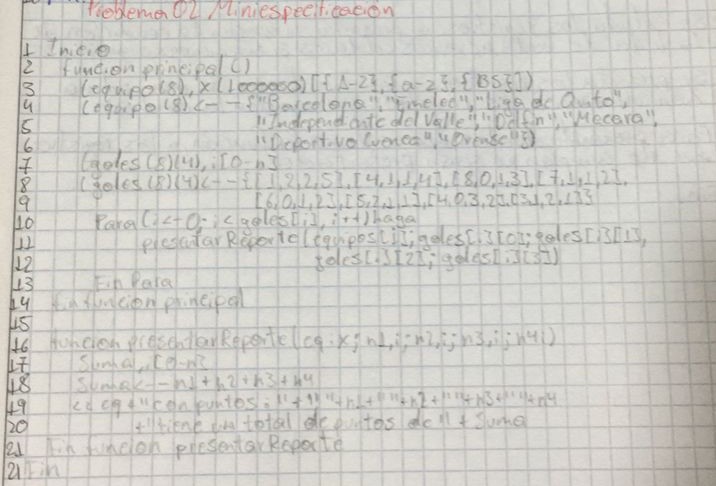 Problema 02 Miniespecificación
1 Inicio
2 funcion principal()
3 (equipo(8), x(1000000)[{A-Z},{a-z},{BS}])
4 (equipo(8)<--{"Barcelona","Emelec","Liga de Quito",
5 "Independiente del Valle","Delfin","Macara",
6 "Deportivo Cuenca","Orense"})
7 (goles(8)(4),i[0-n]
8 (goles(8)(4)<--{[1,2,2,5],[4,1,1,4],[8,0,1,3],[7,1,1,2],
9 [6,0,1,2],[5,2,1,1],[4,0,3,2],[3,1,2,1]}
10 Para(i<-0; i<goles[i], i++)haga
11 presentarReporte(equipos[i]; goles[i][0]; goles[i][1],
12 goles[i][2]; goles[i][3])
13 Fin Para
14 fin funcion principal
15
16 funcion presentarReporte(eq:x; n1,i; n2,i; n3,i; n4i)
17 Suma, [0-n]
18 Suma<--n1+n2+n3+n4
19 << eq+"con puntos:"+" "+n1+" "+n2+" "+n3+" "+n4
20 +"tiene un total de puntos de"+Suma
21 Fin funcion presentarReporte
21 Fin